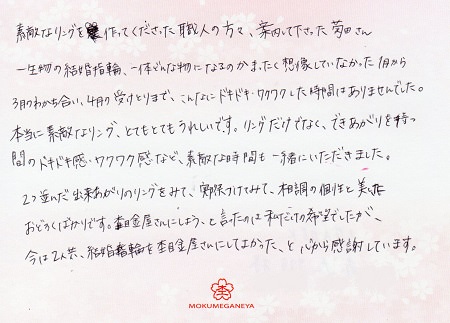 素敵なリングを作ってくださった職人の方々、案内して下さった 夢田さん
一生物の結婚指輪、一体どんな物になるのかまったく想像していなかった1月から
3月のわかち合い、4月の受けとりまで、こんなにドキドキ・ワクワクした時間はありませんでした。
本当に素敵なリング、とてもとてもうれしいです。リングだけでなく、できあがりを待つ
間のドキドキ感・ワクワク感など、素敵な時間も一緒にいただきました。
2つ並んだ出来あがりのリングをみて、実際つけてみて、木目調の個性と美しさに
おどろくばかりです。杢目金屋さんにしよう、と言ったのは私だけの希望でしたが、
今は2人共、結婚指輪を杢目金屋さんにしてよかった、と心から感謝しています。
MOKUMEGANEYA